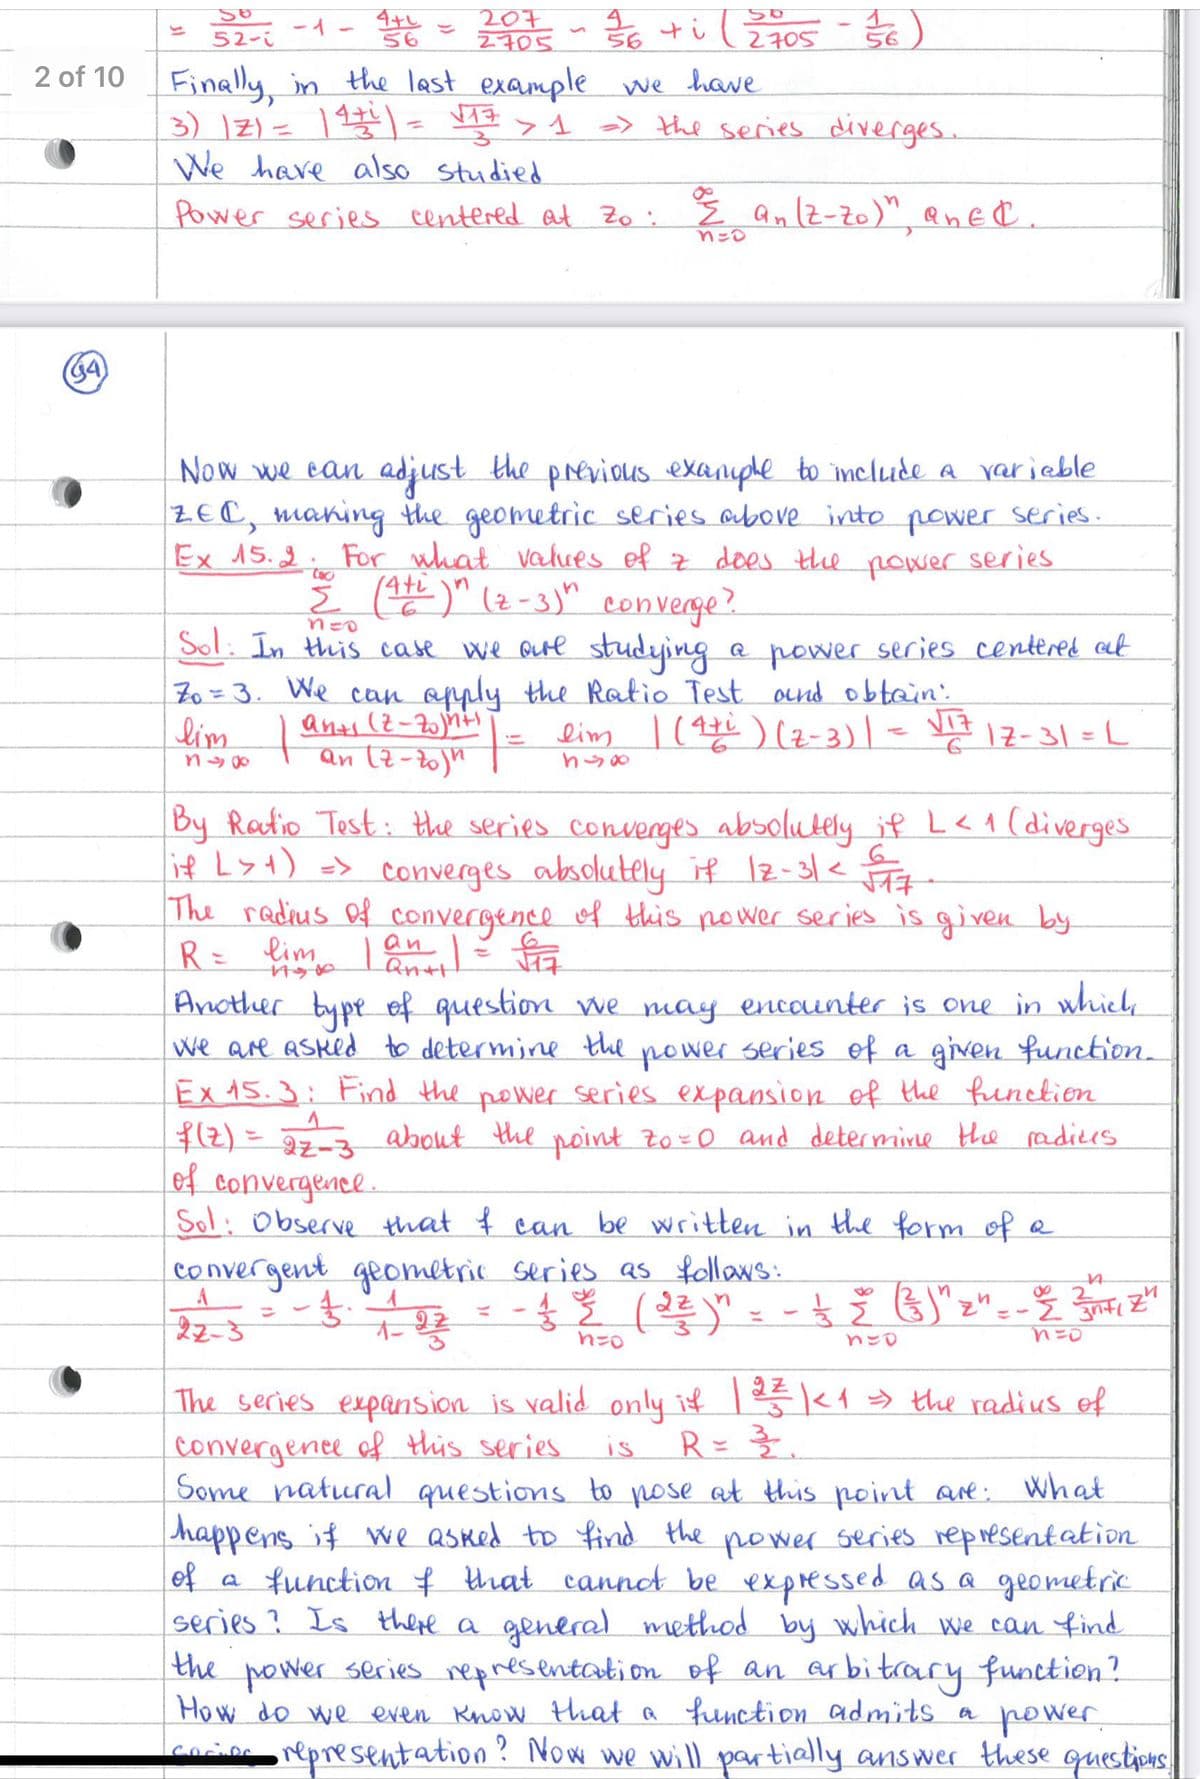 = 56/(52-i) - 1 - (4+i)/56 = 207/2705 - 4/56 + i(56/2705 - 1/56)
2 of 10
Finally, in the last example we have
3) |z| = |(4+i)/3| = √17/3 > 1 => the series diverges.
We have also studied
Power series centered at z₀: ∑_{n=0}^∞ aₙ(z-z₀)ⁿ, aₙ∈ℂ.
94
Now we can adjust the previous example to include a variable
z∈ℂ, making the geometric series above into power series.
Ex 15.2. For what values of z does the power series
∑_{n=0}^∞ ((4+i)/6)ⁿ (z-3)ⁿ converge?
Sol: In this case we are studying a power series centered at
z₀=3. We can apply the Ratio Test and obtain:
lim_{n→∞} |aₙ₊₁(z-z₀)ⁿ⁺¹ / aₙ(z-z₀)ⁿ| = lim_{n→∞} |((4+i)/6)(z-3)| = √17/6 |z-3| = L
By Ratio Test: the series converges absolutely if L<1 (diverges
if L>1) => converges absolutely if |z-3| < 6/√17.
The radius of convergence of this power series is given by
R = lim_{n→∞} |aₙ/aₙ₊₁| = 6/√17
Another type of question we may encounter is one in which
we are asked to determine the power series of a given function.
Ex 15.3: Find the power series expansion of the function
f(z) = 1/(2z-3) about the point z₀=0 and determine the radius
of convergence.
Sol: Observe that f can be written in the form of a
convergent geometric series as follows:
1/(2z-3) = -1/3 · 1/(1-2z/3) = -1/3 ∑_{n=0}^∞ (2z/3)ⁿ = -1/3 ∑_{n=0}^∞ (2/3)ⁿ zⁿ = -∑_{n=0}^∞ 2ⁿ/3ⁿ⁺¹ zⁿ
The series expansion is valid only if |2z/3|<1 => the radius of
convergence of this series is R = 3/2.
Some natural questions to pose at this point are: What
happens if we asked to find the power series representation
of a function f that cannot be expressed as a geometric
series? Is there a general method by which we can find
the power series representation of an arbitrary function?
How do we even know that a function admits a power
series representation? Now we will partially answer these questions.